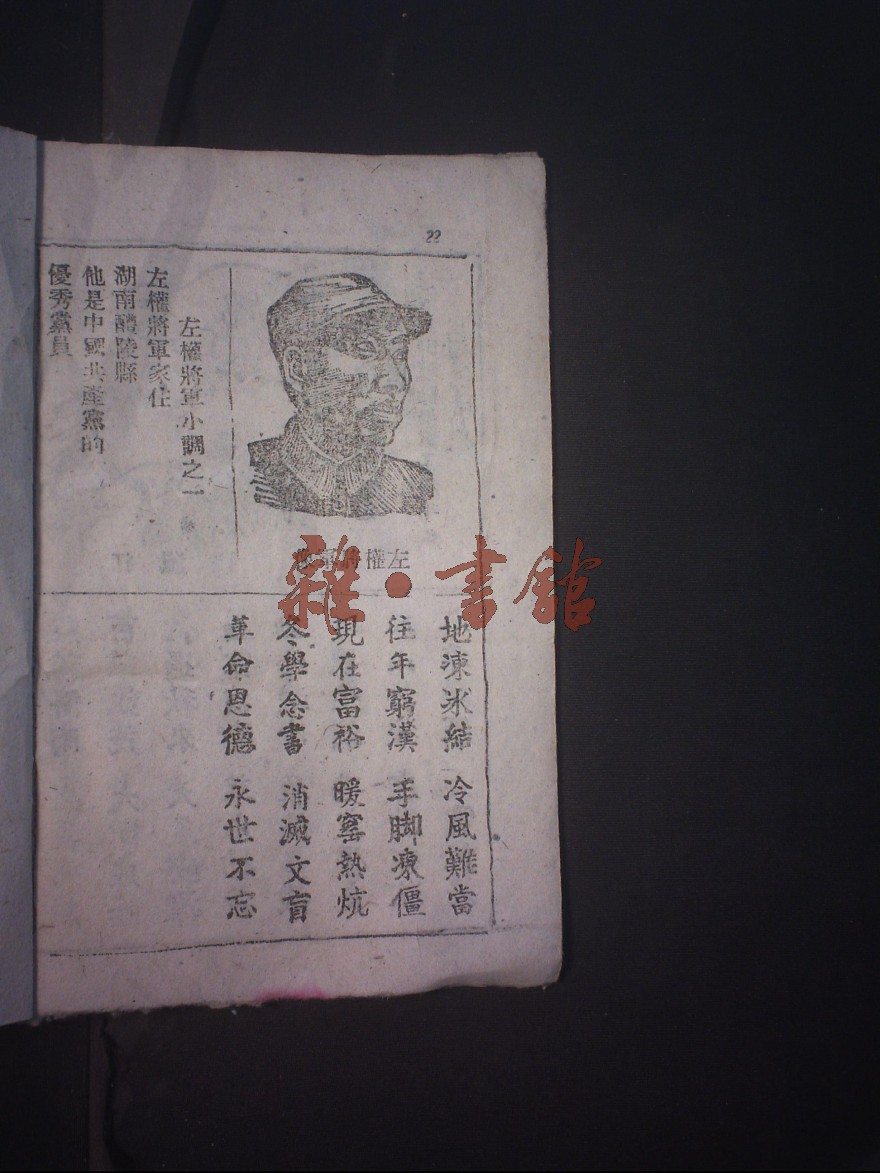 22
左權將軍像
左權將軍小調之一
左權將軍家住
湖南醴陵縣
他是中國共產黨的
優秀黨員
地凍氷結 冷風難當
往年窮漢 手脚凍僵
現在富裕 暖窰熱炕
冬學念書 消滅文盲
革命恩德 永世不忘
雜·書館